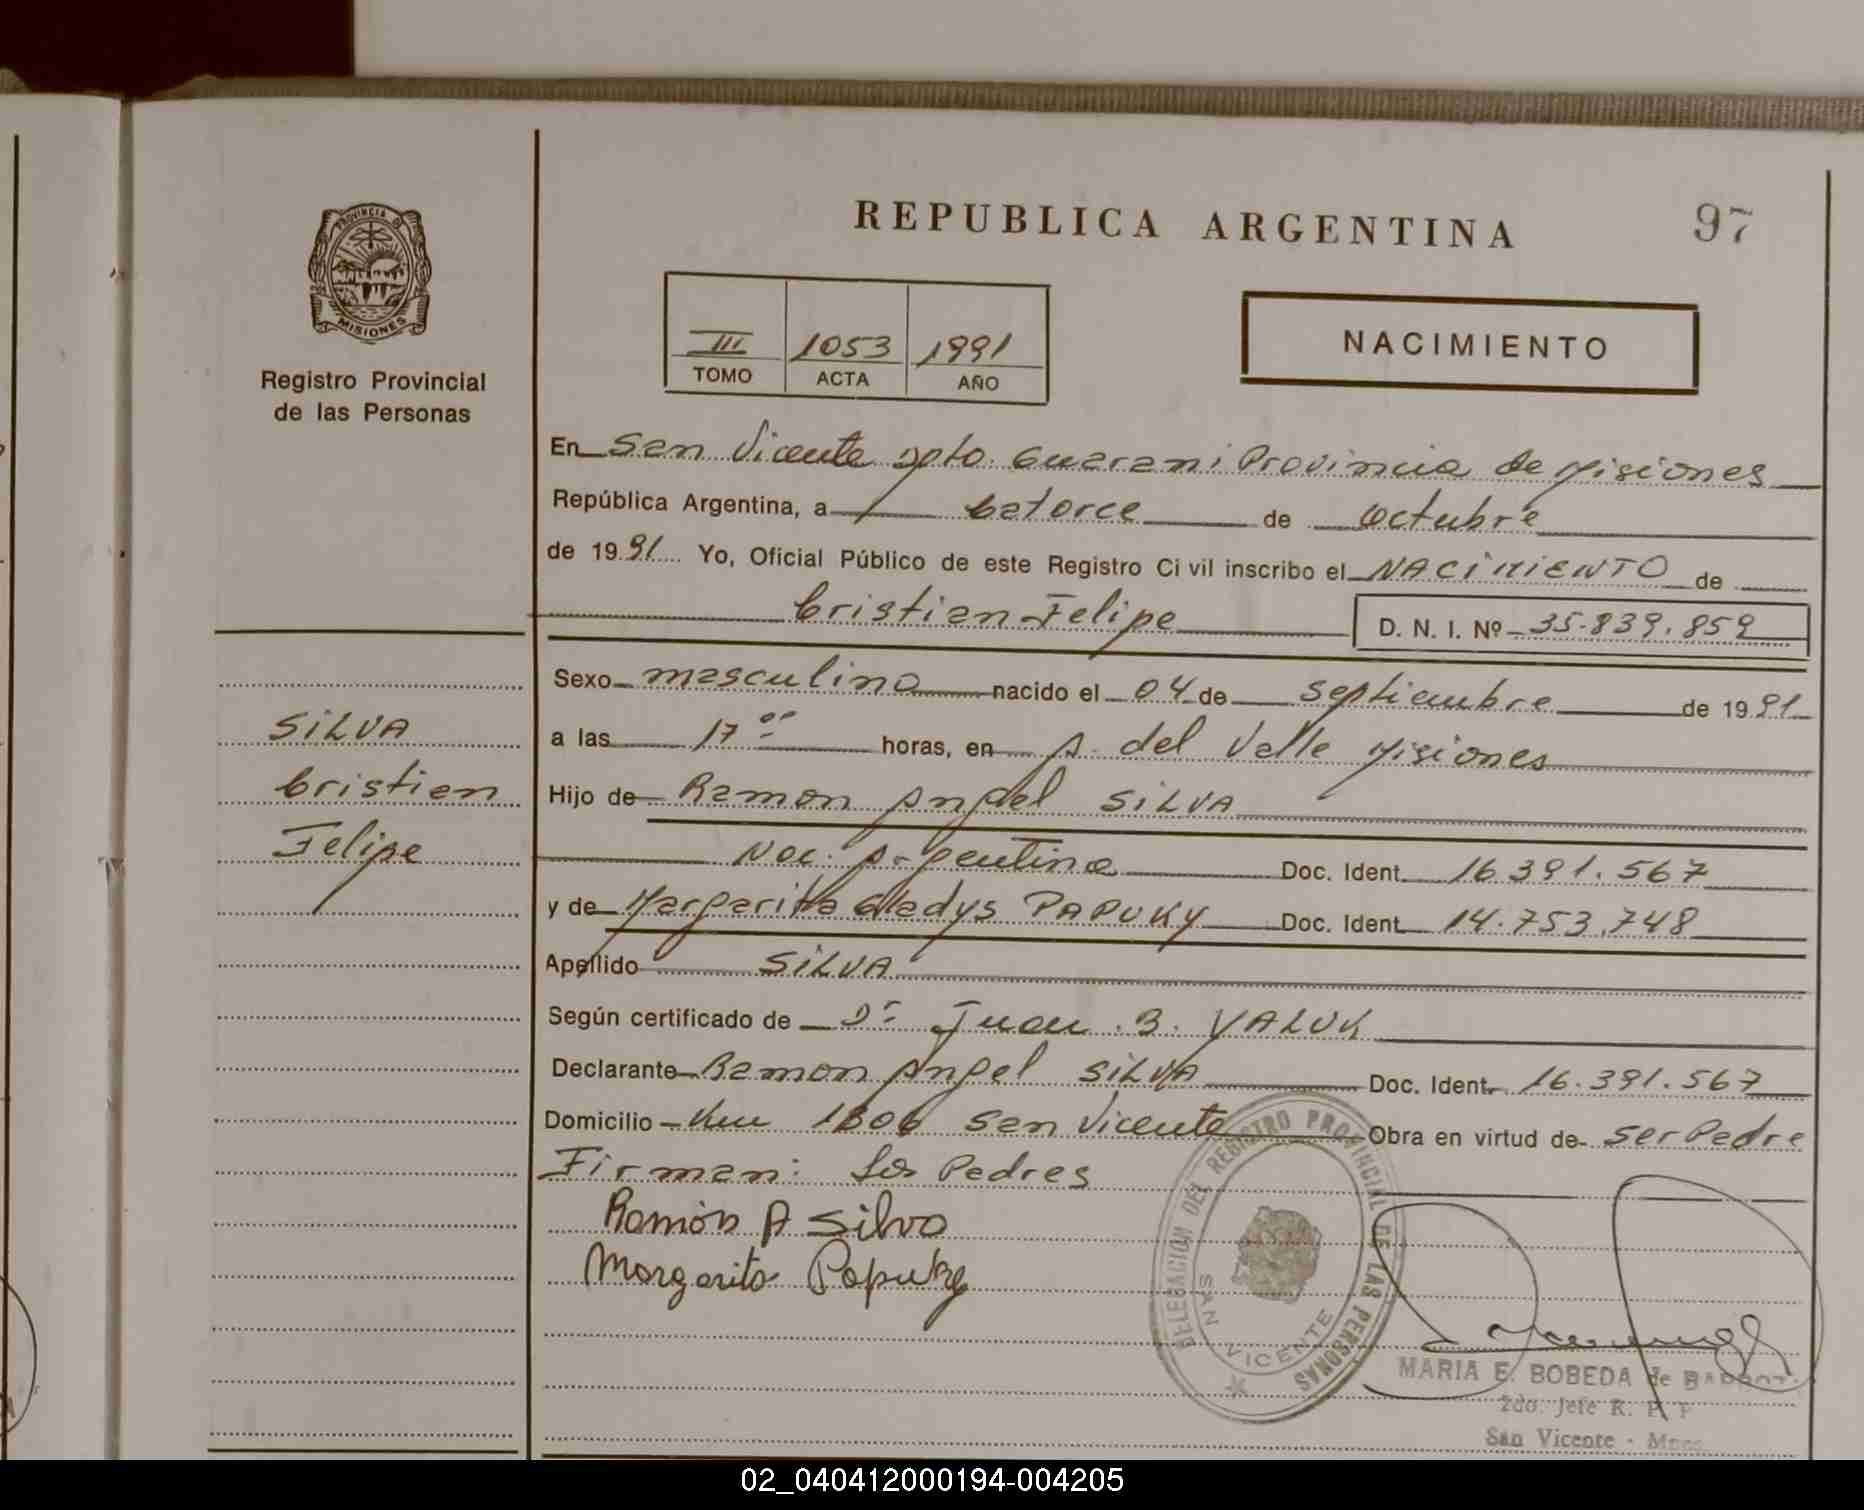 REPUBLICA ARGENTINA
97
PROVINCIA DE
MISIONES
Registro Provincial
de las Personas
III 1053 1991
TOMO ACTA AÑO
NACIMIENTO
En San Vicente Dpto. Guarani Provincia de Misiones
República Argentina, a catorce de Octubre
de 1991 Yo, Oficial Público de este Registro Civil inscribo el NACIMIENTO de
Cristian Felipe D. N. I. Nº 35.839.859
Sexo masculino nacido el 04 de septiembre de 1991
a las 17 00 horas, en A. del Valle Misiones
Hijo de Ramon Angel SILVA
Nac. Argentina Doc. Ident. 16.391.567
y de Margarita Gladys PAPUKY Doc. Ident. 14.753.748
Apellido SILVA
Según certificado de Dr Juan B. VALUK
Declarante Ramon Angel SILVA Doc. Ident. 16.391.567
Domicilio Km 1306 San Vicente Obra en virtud de Ser Padre
Firman: Los Padres
Ramón A Silva
Margarita Papuky
SILVA
Cristian
Felipe
DELEGACION DEL REGISTRO PROVINCIAL DE LAS PERSONAS
SAN VICENTE
MARIA E. BOBEDA de
2do. Jefe R. P. P
San Vicente - Mnes.
02_040412000194-004205